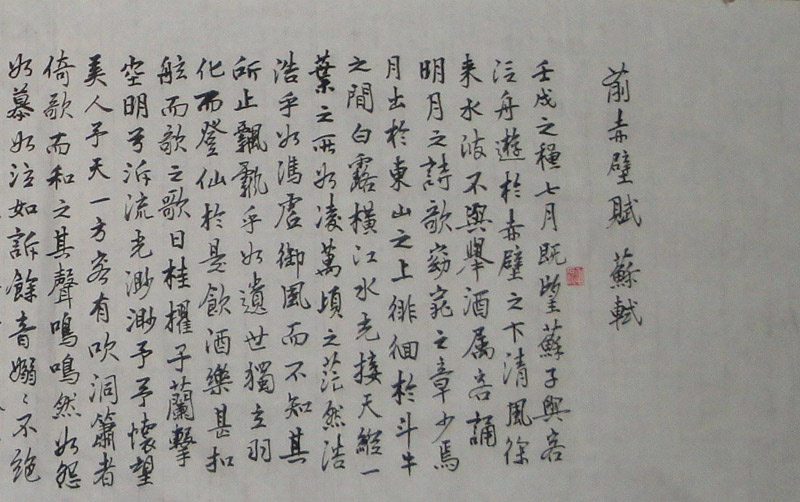 前赤壁賦 蘇軾
壬戌之穐七月既望蘇子與客
泛舟遊於赤壁之下清風徐
来水波不興舉酒属客誦
明月之詩歌窈窕之章少焉
月出於東山之上徘徊於斗牛
之間白露橫江水光接天縱一
葉之所如凌萬頃之茫然浩
浩乎如馮虛御風而不知其
所止飄飄乎如遺世獨立羽
化而登仙於是飲酒樂甚扣
舷而歌之歌曰桂櫂兮蘭擊
空明兮泝流光渺渺兮予懷望
美人兮天一方客有吹洞簫者
倚歌而和之其聲鳴鳴然如怨
如慕如泣如訴餘音嫋々不絕